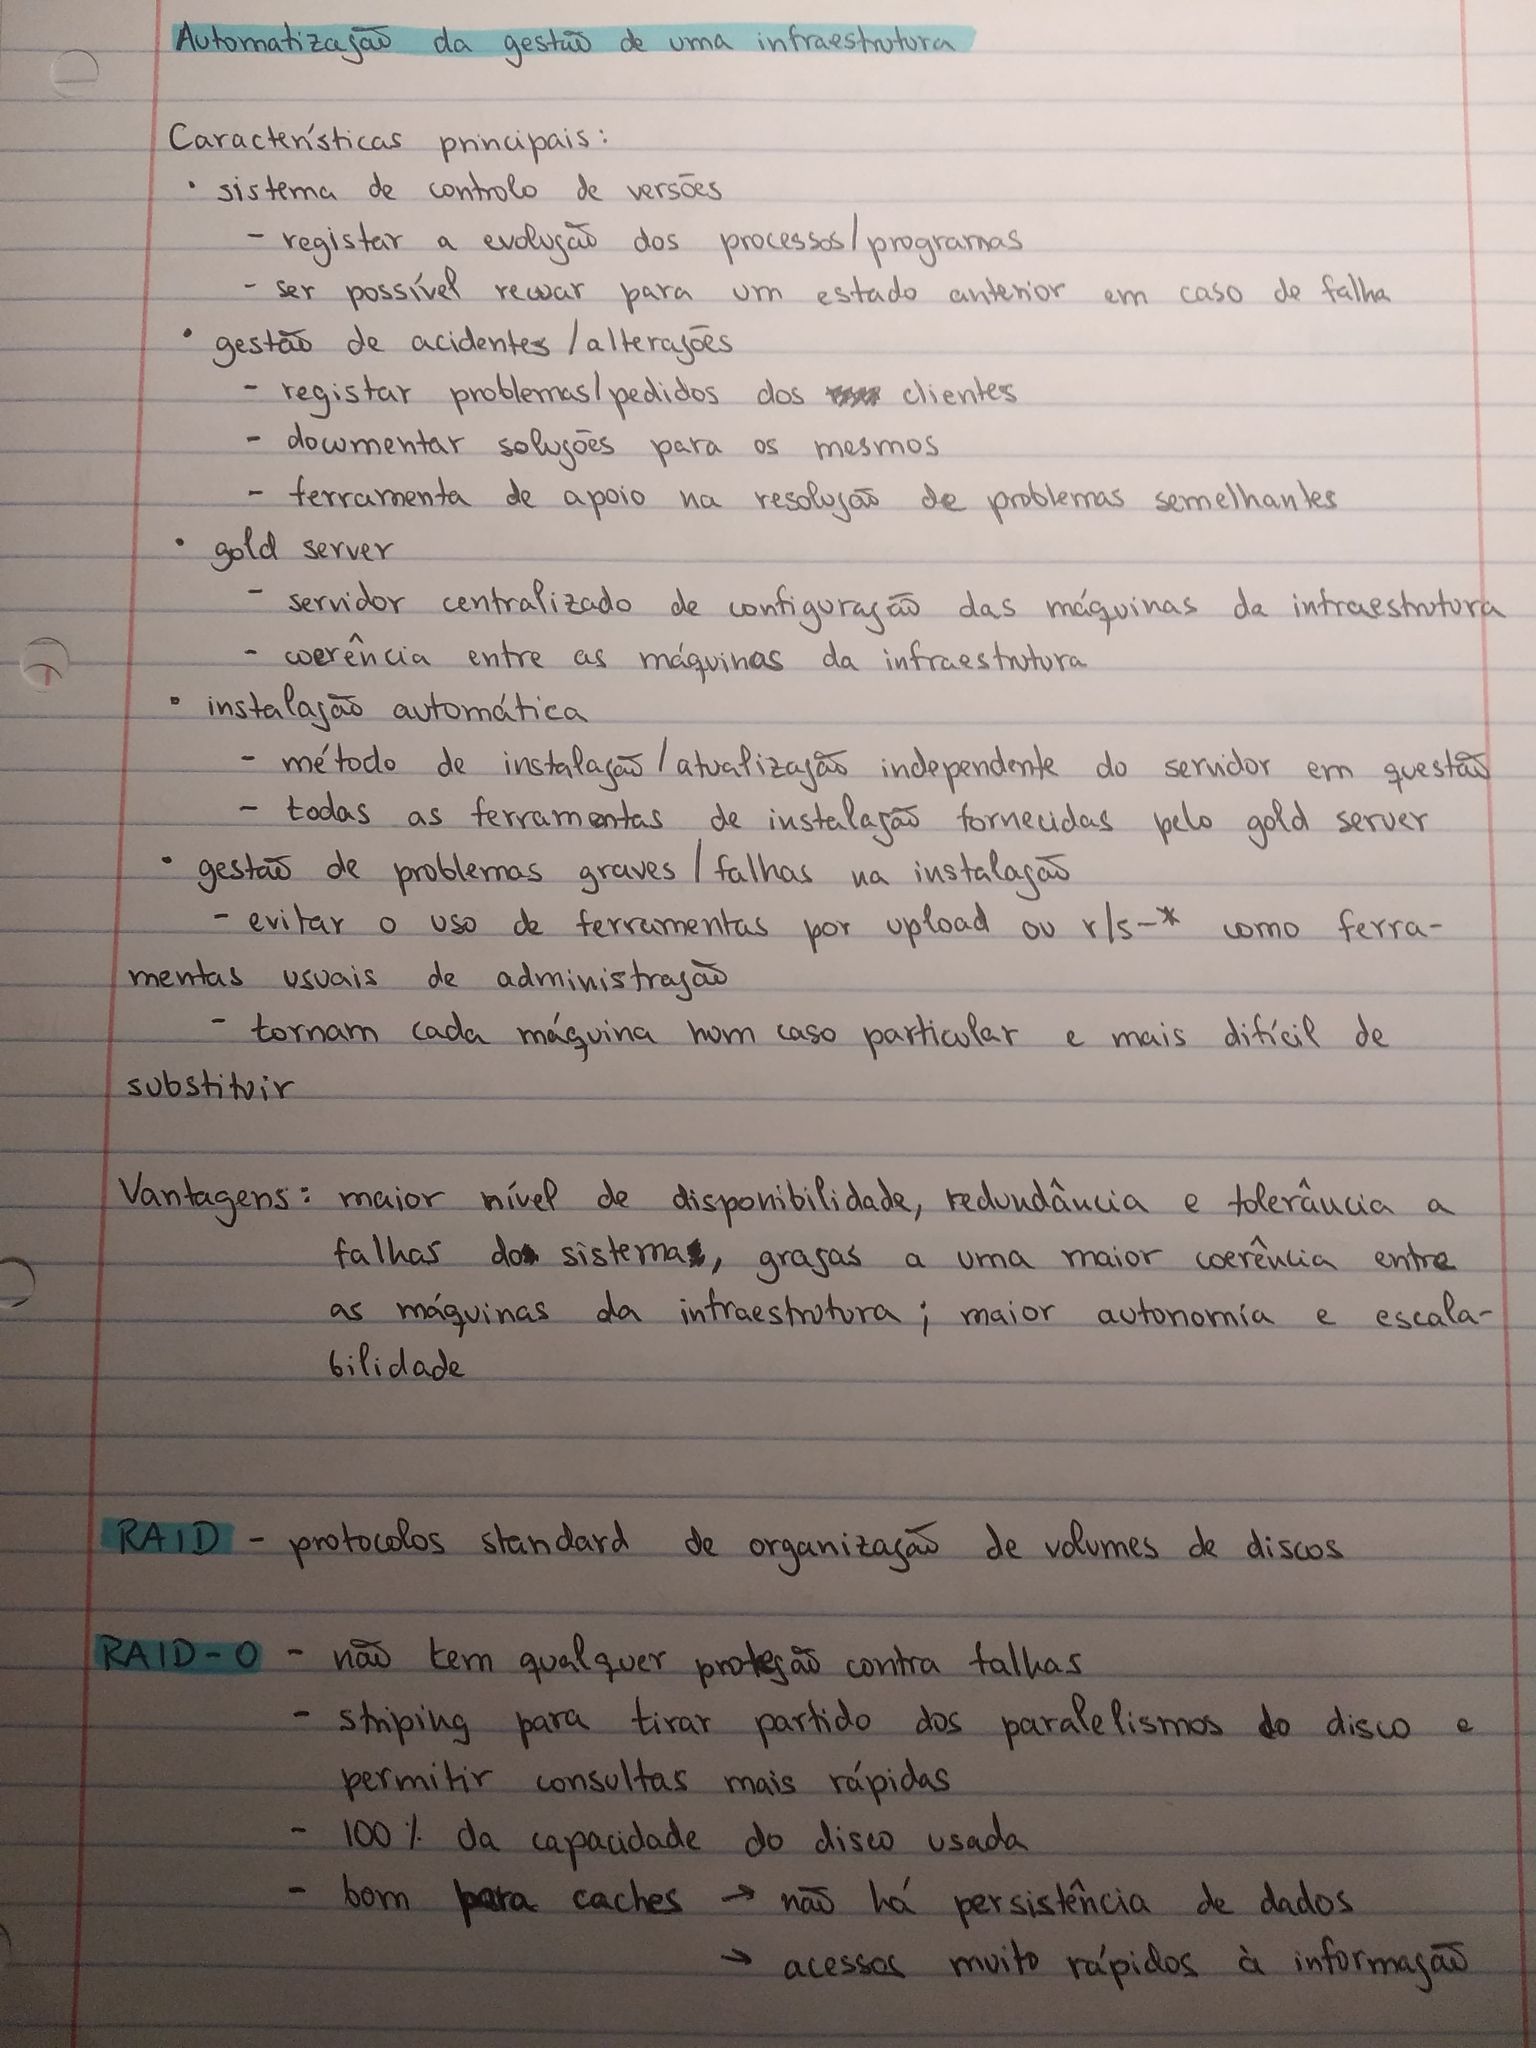 Automatização da gestão de uma infraestrutura
Características principais:
• sistema de controlo de versões
- registar a evolução dos processos/programas
- ser possível recuar para um estado anterior em caso de falha
• gestão de acidentes/alterações
- registar problemas/pedidos dos clientes
- documentar soluções para os mesmos
- ferramenta de apoio na resolução de problemas semelhantes
• gold server
- servidor centralizado de configuração das máquinas da infraestrutura
- coerência entre as máquinas da infraestrutura
• instalação automática
- método de instalação/atualização independente do servidor em questão
- todas as ferramentas de instalação fornecidas pelo gold server
• gestão de problemas graves/falhas na instalação
- evitar o uso de ferramentas por upload ou r/s-* como ferra-
mentas usuais de administração
- tornam cada máquina num caso particular e mais difícil de
substituir
Vantagens: maior nível de disponibilidade, redundância e tolerância a
falhas do sistema, graças a uma maior coerência entre
as máquinas da infraestrutura; maior autonomia e escala-
bilidade
RAID - protocolos standard de organização de volumes de discos
RAID-0 - não tem qualquer proteção contra falhas
- striping para tirar partido dos paralelismos do disco e
permitir consultas mais rápidas
- 100% da capacidade do disco usada
- bom para caches → não há persistência de dados
→ acessos muito rápidos à informação